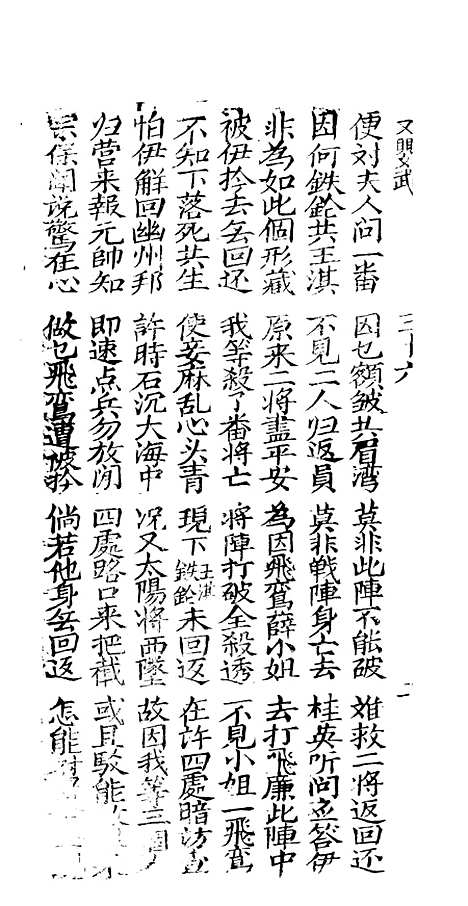 又開文武 三十六
便对夫人问一番 因乜額皱共眉湾 莫非此陣不能破 难救二将返回还
因何鉄鈴共王淇 不見二人归返員 莫非戦陣身亡去 桂英听问立答伊
非為如此個形藏 原来二将盡平安 為因飛鸾薛小姐 去打飛廉此陣中
被伊拎去无回还 我等殺了番将亡 将陣打破全殺透 不見小姐一飛鸾
不知下落死共生 使妾麻乱心头青 現下王淇鉄鈴未回返 在許四處暗访查
怕伊解回幽州邦 許時石沉大海中 况又太陽将西墜 故因我等三個
归营来報元帥知 即速点兵勿放闲 四處路口来把截 或且駁能
宗保闻说驚在心 做乜飛鸾遭被拎 倘若他身无回返 怎能